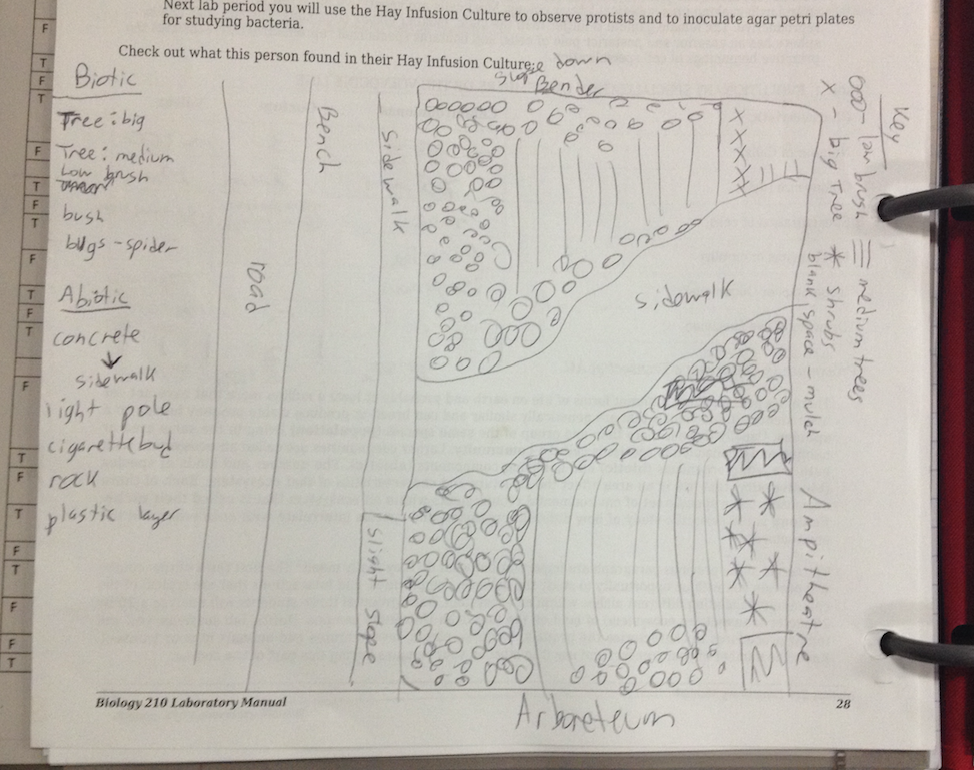 Next lab period you will use the Hay Infusion Culture to observe protists and to inoculate agar petri plates
for studying bacteria.
Check out what this person found in their Hay Infusion Culture:
slope down
Bender
Biotic
Tree: big
Tree: medium
Low brush
bush
bugs - spider
Abiotic
concrete
sidewalk
light pole
cigarettebud
rock
plastic layer
road
Bench
sidewalk
slight slope
sidewalk
X X X X X
Key
low brush
X - big tree
medium trees
* shrubs
blank space - mulch
Ampitheatre
Arboreteum
Biology 210 Laboratory Manual
28
F
T
F
T
F
T
F
T
F
T
F
T
F
T
F
T
F
T
F
F
T